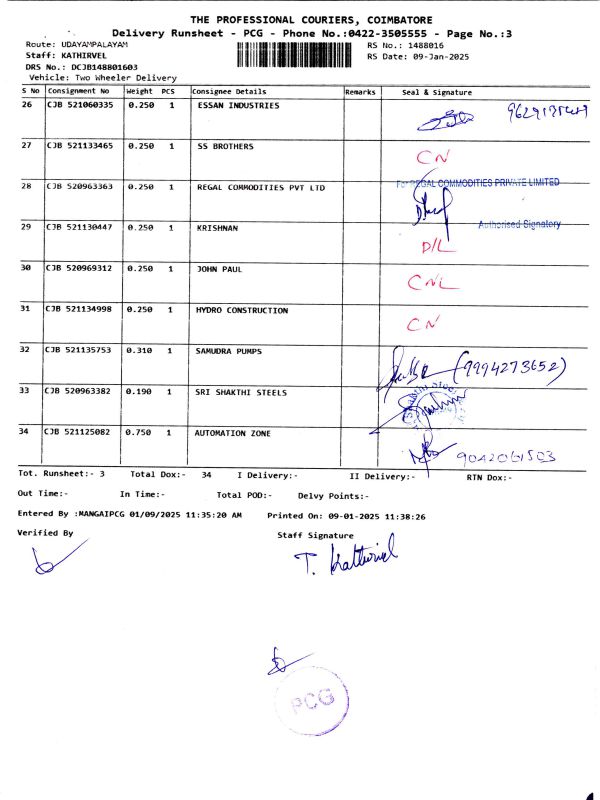 THE PROFESSIONAL COURIERS, COIMBATORE
Delivery Runsheet - PCG - Phone No.:0422-3505555 - Page No.:3
Route: UDAYAMPALAYAM RS No.: 1488016
Staff: KATHIRVEL RS Date: 09-Jan-2025
DRS No.: DCJB148801603
Vehicle: Two Wheeler Delivery
S No Consignment No Weight PCS Consignee Details Remarks Seal & Signature
26 CJB 521060335 0.250 1 ESSAN INDUSTRIES
27 CJB 521133465 0.250 1 SS BROTHERS CN
28 CJB 520963363 0.250 1 REGAL COMMODITIES PVT LTD For REGAL COMMODITIES PRIVATE LIMITED
Authorised Signatory
29 CJB 521130447 0.250 1 KRISHNAN D/L
30 CJB 520969312 0.250 1 JOHN PAUL CNL
31 CJB 521134998 0.250 1 HYDRO CONSTRUCTION CN
32 CJB 521135753 0.310 1 SAMUDRA PUMPS (9994273652)
33 CJB 520963382 0.190 1 SRI SHAKTHI STEELS
34 CJB 521125082 0.750 1 AUTOMATION ZONE 9042061503
Tot. Runsheet:- 3 Total Dox:- 34 I Delivery:- II Delivery:- RTN Dox:-
Out Time:- In Time:- Total POD:- Delvy Points:-
Entered By :MANGAIPCG 01/09/2025 11:35:20 AM Printed On: 09-01-2025 11:38:26
Verified By Staff Signature
T. Kathirvel
PCG